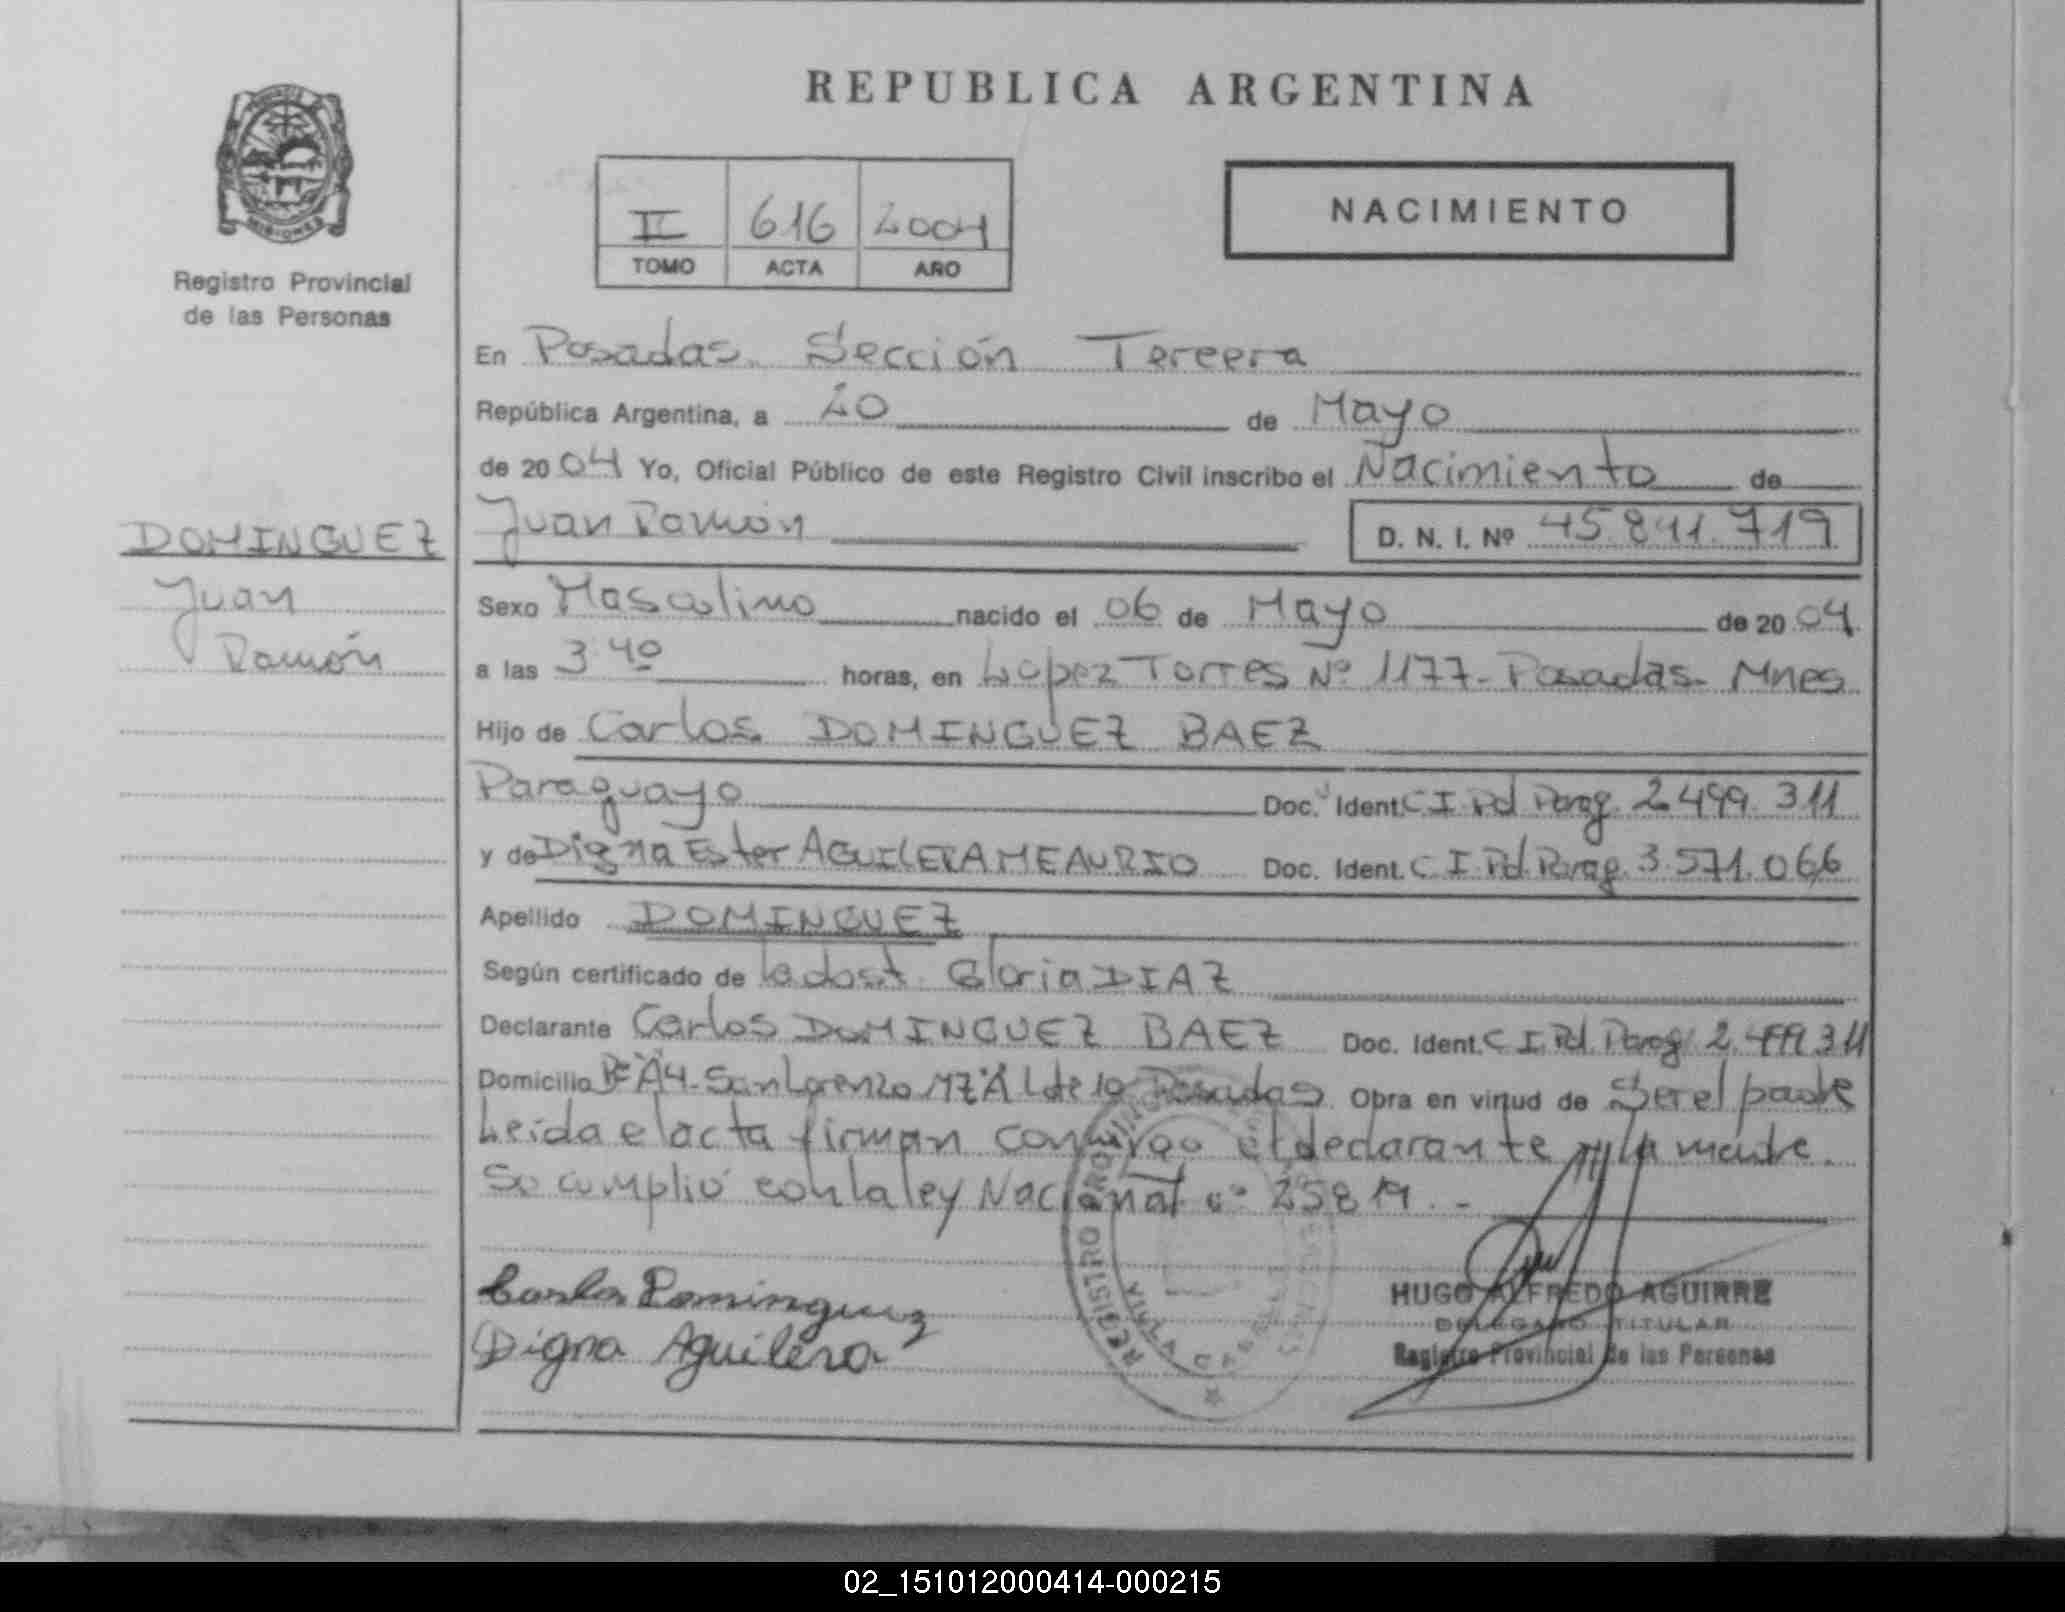 REPUBLICA ARGENTINA
NACIMIENTO
II 616 2004
TOMO ACTA AÑO
MISIONES
Registro Provincial
de las Personas
DOMINGUEZ
Juan
Ramón
En Posadas. Sección Tercera
República Argentina, a 20 de Mayo
de 2004 Yo, Oficial Público de este Registro Civil inscribo el Nacimiento de
Juan Ramón D. N. I. Nº 45.841.719
Sexo Masculino nacido el 06 de Mayo de 2004
a las 3.40 horas, en Lopez Torres Nº 1177- Posadas- Mnes
Hijo de Carlos DOMINGUEZ BAEZ
Paraguayo Doc. Ident. C I Pol Parag. 2.499.311
y de Digna Ester AGUILERA MEAURIO Doc. Ident. C I Pol. Parag. 3.571.066
Apellido DOMINGUEZ
Según certificado de la obst. Gloria DIAZ
Declarante Carlos DOMINGUEZ BAEZ Doc. Ident. C I. Pol. Parag. 2.499.311
Domicilio Bº A4- San Lorenzo MZ"A" Lote 19 Posadas Obra en virtud de Ser el padre
Leída el acta firman conmigo el declarante y la madre.
Se cumplió con la ley Nacional nº 25819.-
Carlos Dominguez
Digna Aguilera
REGISTRO PROVINCIAL
VILLA CABELLO
HUGO ALFREDO AGUIRRE
DELEGADO TITULAR
Registro Provincial de las Personas
02_151012000414-000215